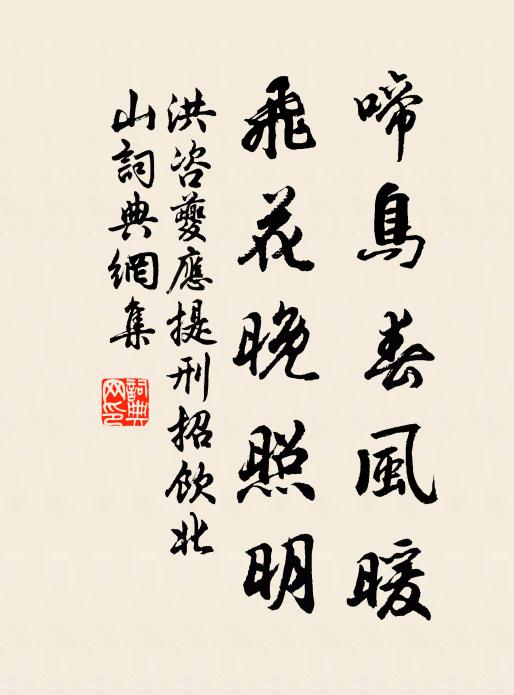 啼鳥春風暖
飛花晚照明
洪咨夔應提刑招飲北
山詞典網集
詞典
网印